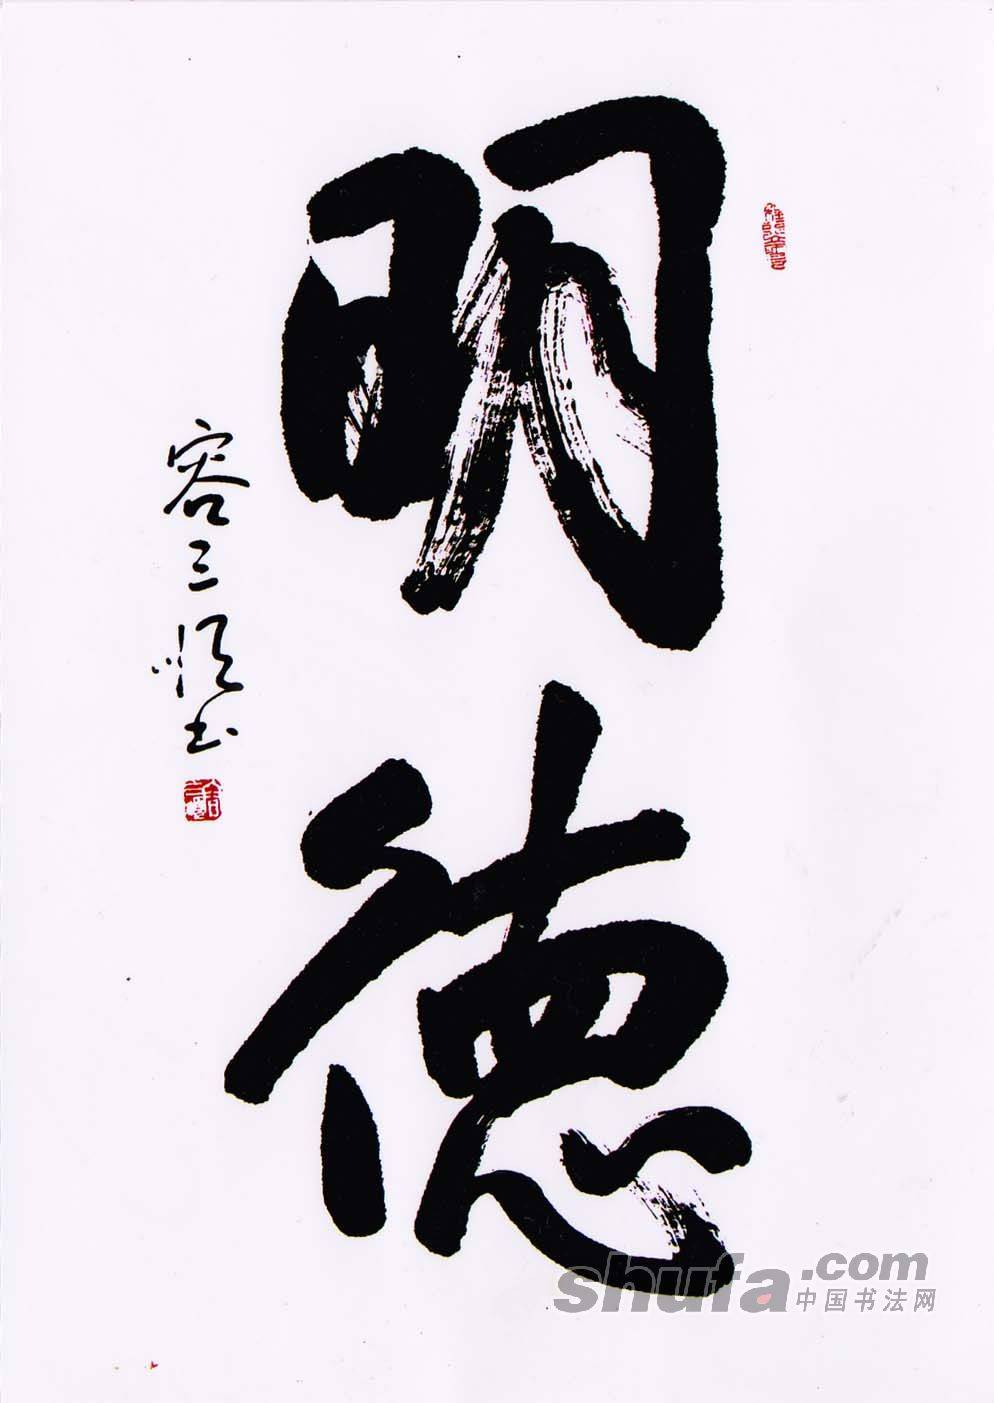 明德
容三顺书
shufa.com
中国书法网